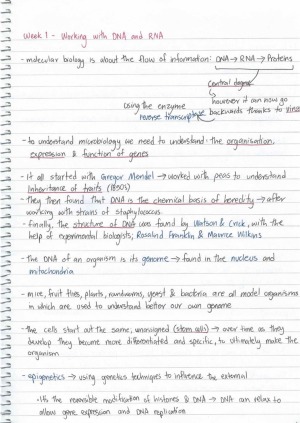 Week 1 - Working with DNA and RNA
- molecular biology is about the flow of information: DNA → RNA → Proteins
central dogma
however it can now go
using the enzyme backwards thanks to virus
reverse transcriptase
- to understand microbiology we need to understand the organisation,
expression & function of genes
- it all started with Gregor Mendel → worked with peas to understand
inheritance of traits (1850s)
- They then found that DNA is the chemical basis of heredity → after
working with strains of staphylococcus
- Finally, the structure of DNA was found by Watson & Crick, with the
help of experimental biologists, Rosalind Franklin & Maurice Wilkins
- the DNA of an organism is its genome → found in the nucleus and
mitochondria
- mice, fruit flies, plants, roundworms, yeast & bacteria are all model organisms
in which are used to understand better our own genome
- the cells start out the same, unassigned (stem cells) → over time as they
develop they become more differentiated and specific, to ultimately make the
organism
- epigenetics → using genetics techniques to influence the external
· It's the reversible modification of histones & DNA → DNA can relax to
allow gene expression and DNA replication